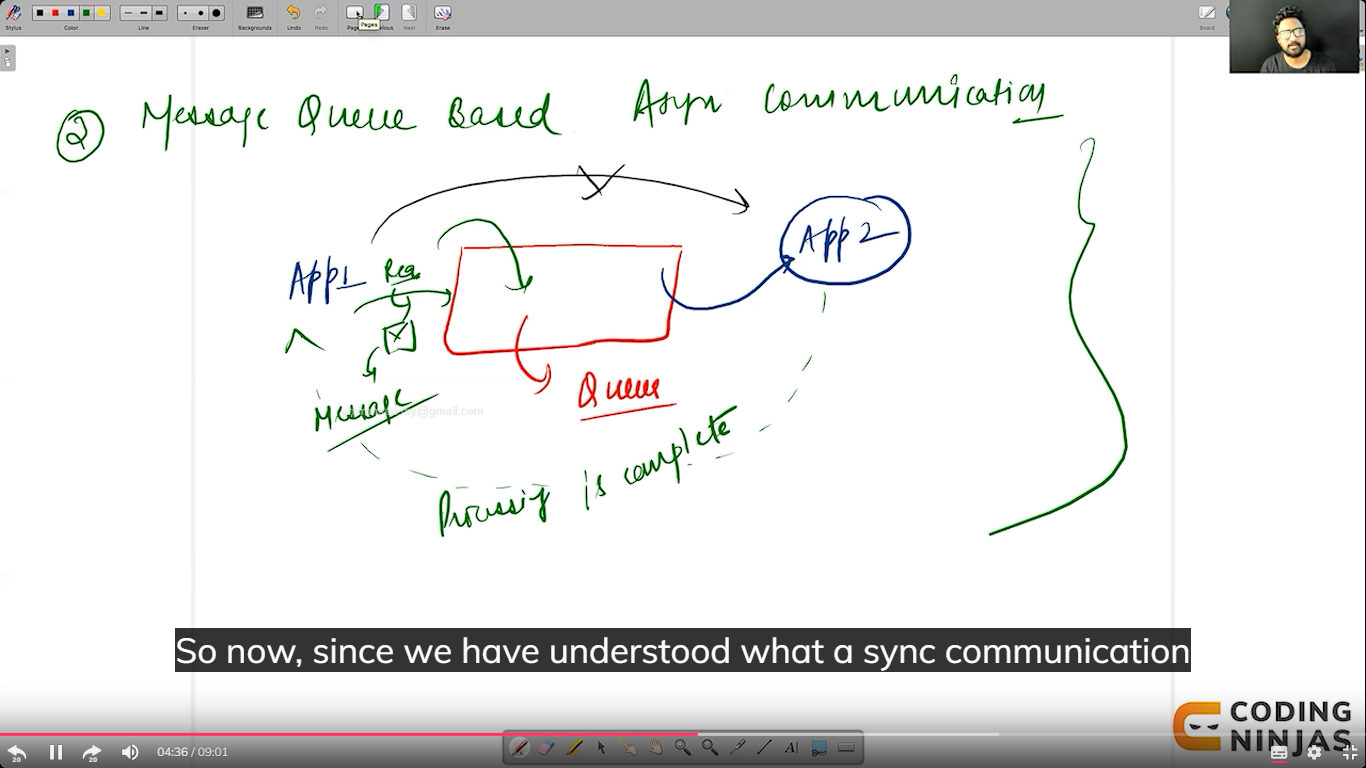 Stylus
Color
Line
Eraser
Backgrounds
Undo
Redo
Pages
Next
Erase
Board
Pages
② Message Queue Based Async Communication
App 2
App1
Req
Queue
Message
Processing is complete
So now, since we have understood what a sync communication
CODING
NINJAS
20
20
04:36 / 09:01